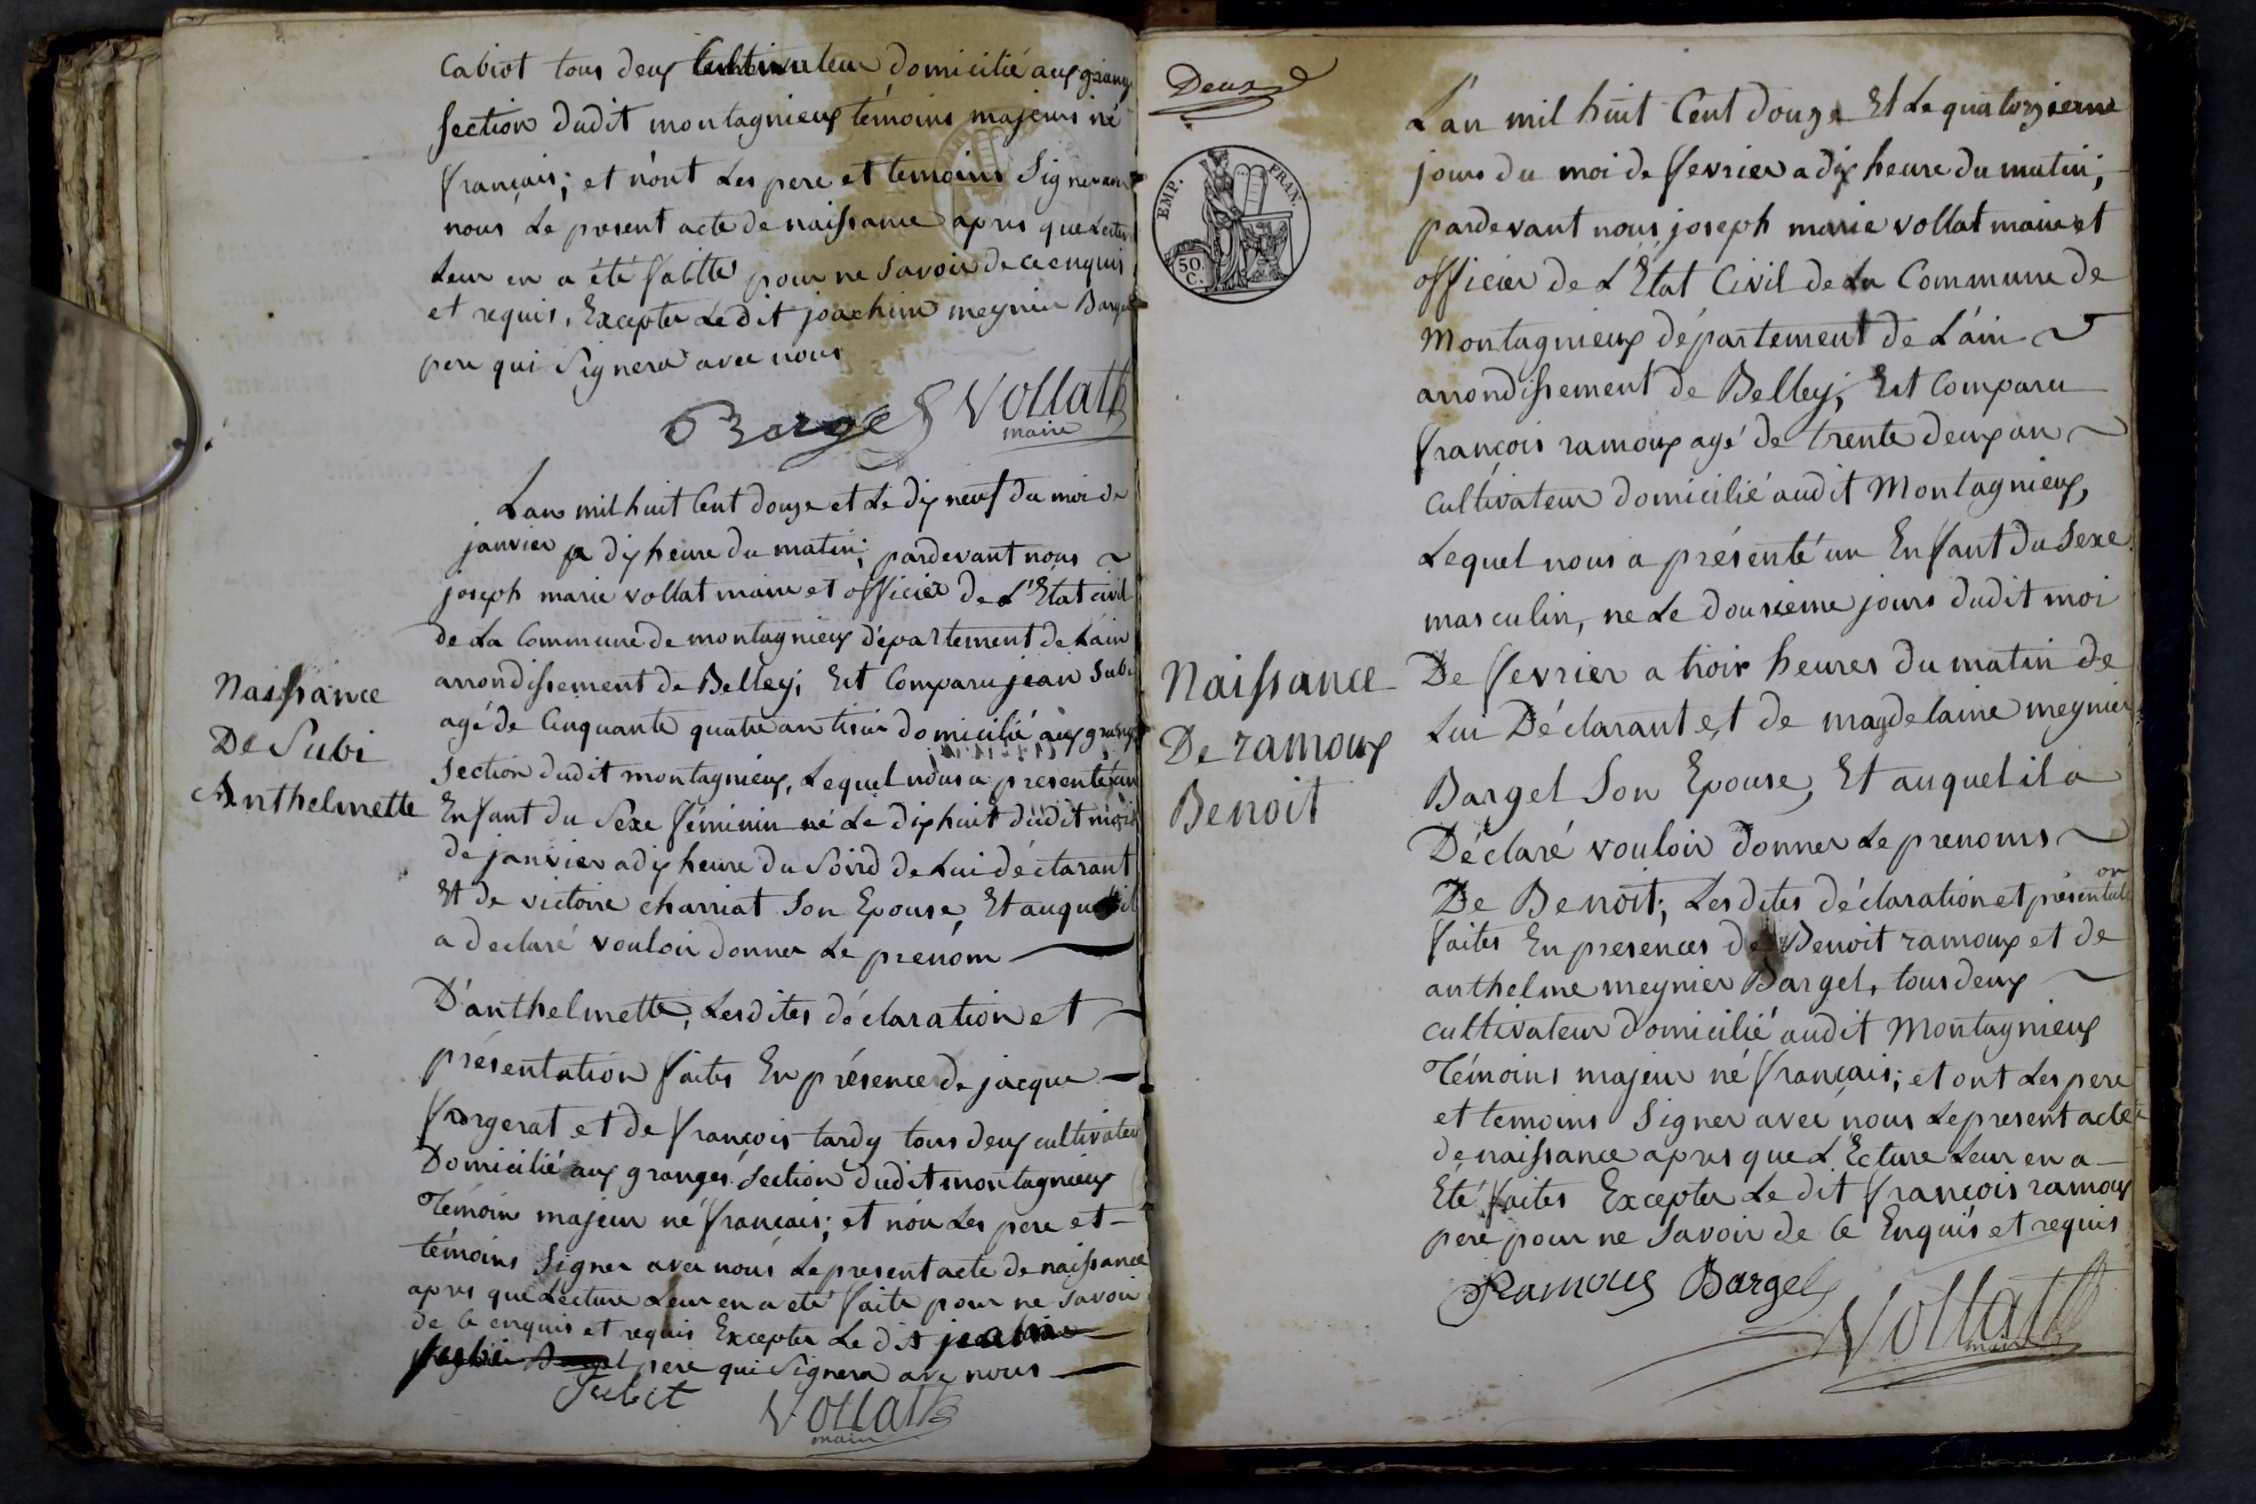 Cabiot tous deux Cultivateur domicilié aux grange
section dudit montagnieux témoins majeurs né
français; et n'ont Les pere et temoins Signer avec
nous Le present acte de naissance apres que Lecture
Leur en a été faitte pour ne Savoir de ce enquis
et requis, Excepter Ledit joachim meynier Bargel
pere qui Signera avec nous
Bargel Vollat
maire
Lan mil huit Cent douze et Le dix neuf du moi de
janvier a dix heure du matin; pardevant nous
joseph marie vollat maire et officier de L'Etat civil
de La Commune de montagnieux département de Lain
arrondissement de Belley; Est Comparu jean Subi
agé de Cinquante quatre an tisir domicilié aux grange
Section dudit montagnieux, Lequel nous a presenté un
Enfant du Sexe féminin né Le dix huit dudit mois
de janvier a dix heure du Soird de Lui déclarant
Et de victoire charriat Son Epouse, Et auquel il
a declaré vouloir donner Le prenom
D'anthelmette, Lesdites déclaration et
présentation faites En présence de jacque
frorgerat et de françois tardy tous deux cultivateur
Domicilié aux granges Section dudit montagnieux
Témoin majeur né français; et non Les pere et
témoins Signer avec nous Le present acte de naissance
apres que Lecture Leur en a eté faite pour ne Savoir
de Ce enquis et requis Excepter Le dit
pere qui Signera avec nous
Subit Vollat
maire
Naissance
De Subi
Anthelmette
Deux
EMP. FRAN.
50. C.
L'an mil huit Cent douze Et Le quatorzieme
jours du moi de fevrier a dix heure du matin;
pardevant nous joseph marie vollat maire et
officier de L'Etat Civil de La Commune de
Montagnieux département de L'ain
arrondissement de Belley; Est Comparu
françois ramoux agé de trente deux an
Cultivateur domicilié audit Montagnieux,
Lequel nous a présenté un Enfant du Sexe
masculin, ne Le dousieme jours dudit moi
De fevrier a troir heures du matin de
Lui Déclarant et de magdelaine meynier
Bargel Son Epouse, Et auquel il a
Déclaré vouloir donner Le prenoms
De Benoit; Lesdites déclaration et présentation
faites En presences de Benoit ramoux et de
anthelme meynier Bargel, tous deux
cultivateur domicilié audit Montagnieux
Témoins majeur né français; et ont Les pere
et temoins Signer avec nous Le present acte
de naissance apres que L'Ecture Leur en a
Eté faites Excepter Le dit françois ramoux
pere pour ne Savoir de Ce Enquis et requis
Ramoux Bargel
Vollat
maire
Naissance
De ramoux
Benoit